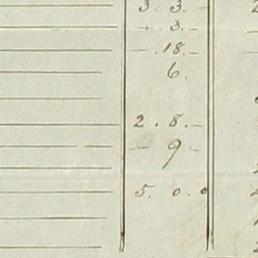 3. 3. -
- . 3. -
- . 18. -
6.
2. 8. -
- 9 -
5. 0. 0